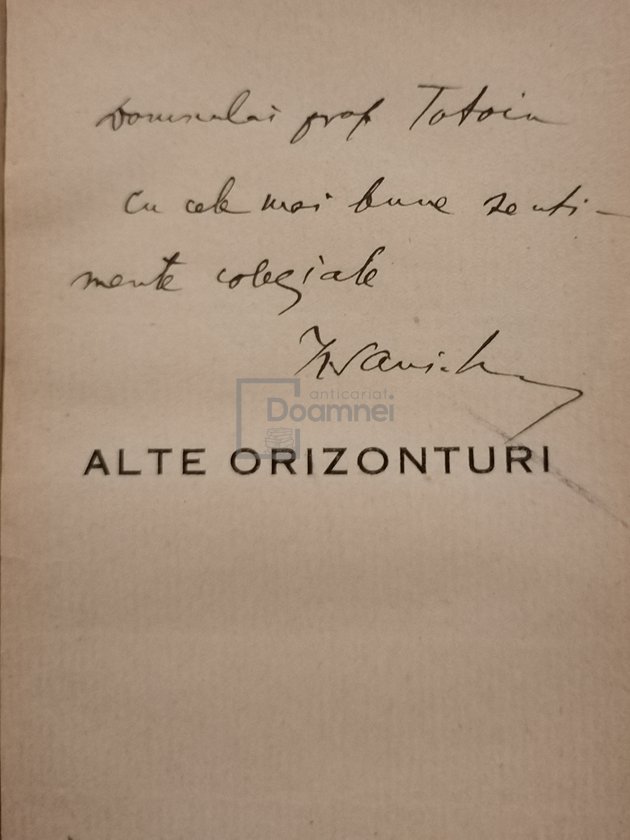 Domnului prof Totoiu
cu cele mai bune senti-
mente colegiale
anticariat
Doamnei
ALTE ORIZONTURI